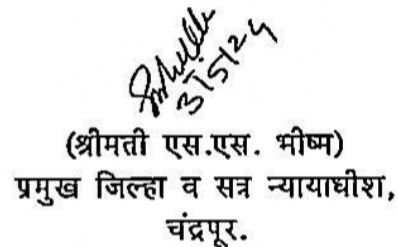 3/5/24
(श्रीमती एस.एस. भीष्म)
प्रमुख जिल्हा व सत्र न्यायाधीश,
चंद्रपूर.